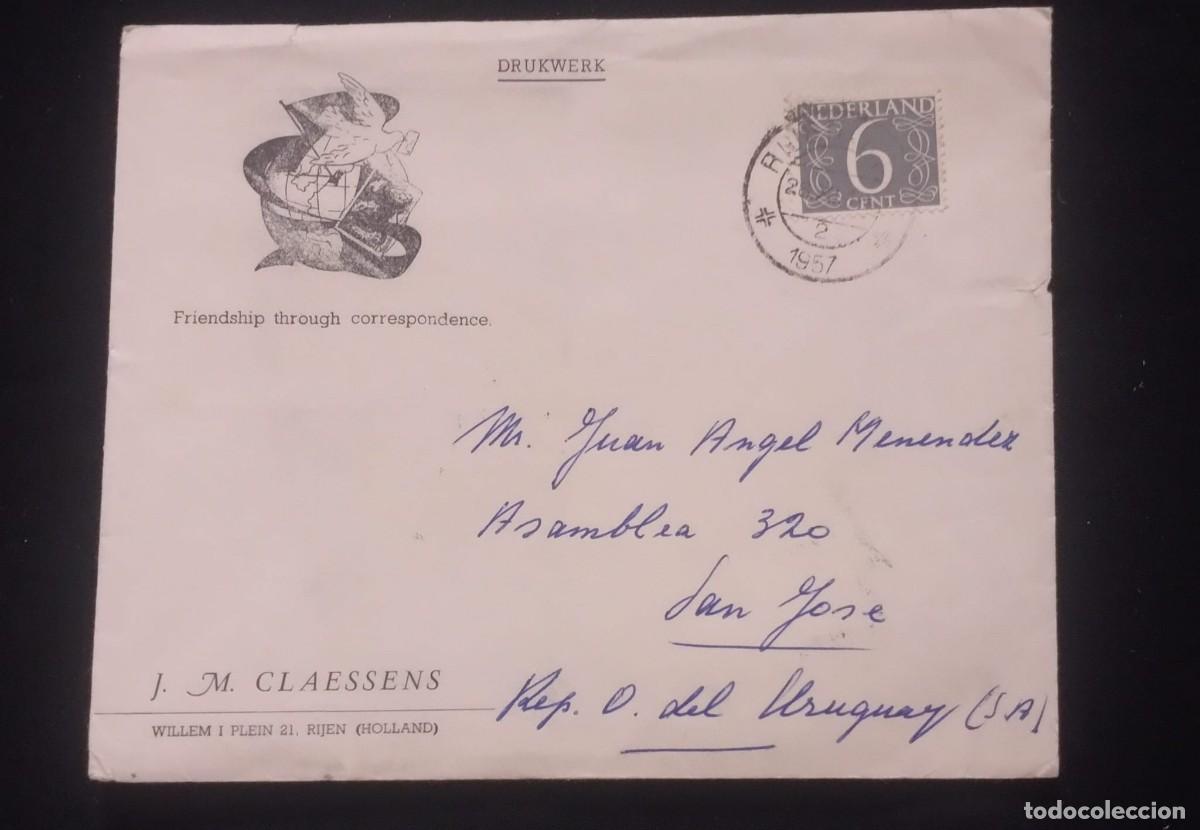 DRUKWERK
NEDERLAND
6
CENT
2
1957
Friendship through correspondence.
Mr. Juan Angel Menendez
Asamblea 320
San Jose
Rep. O. del Uruguay (S A)
J. M. CLAESSENS
WILLEM I PLEIN 21, RIJEN (HOLLAND)
todocoleccion